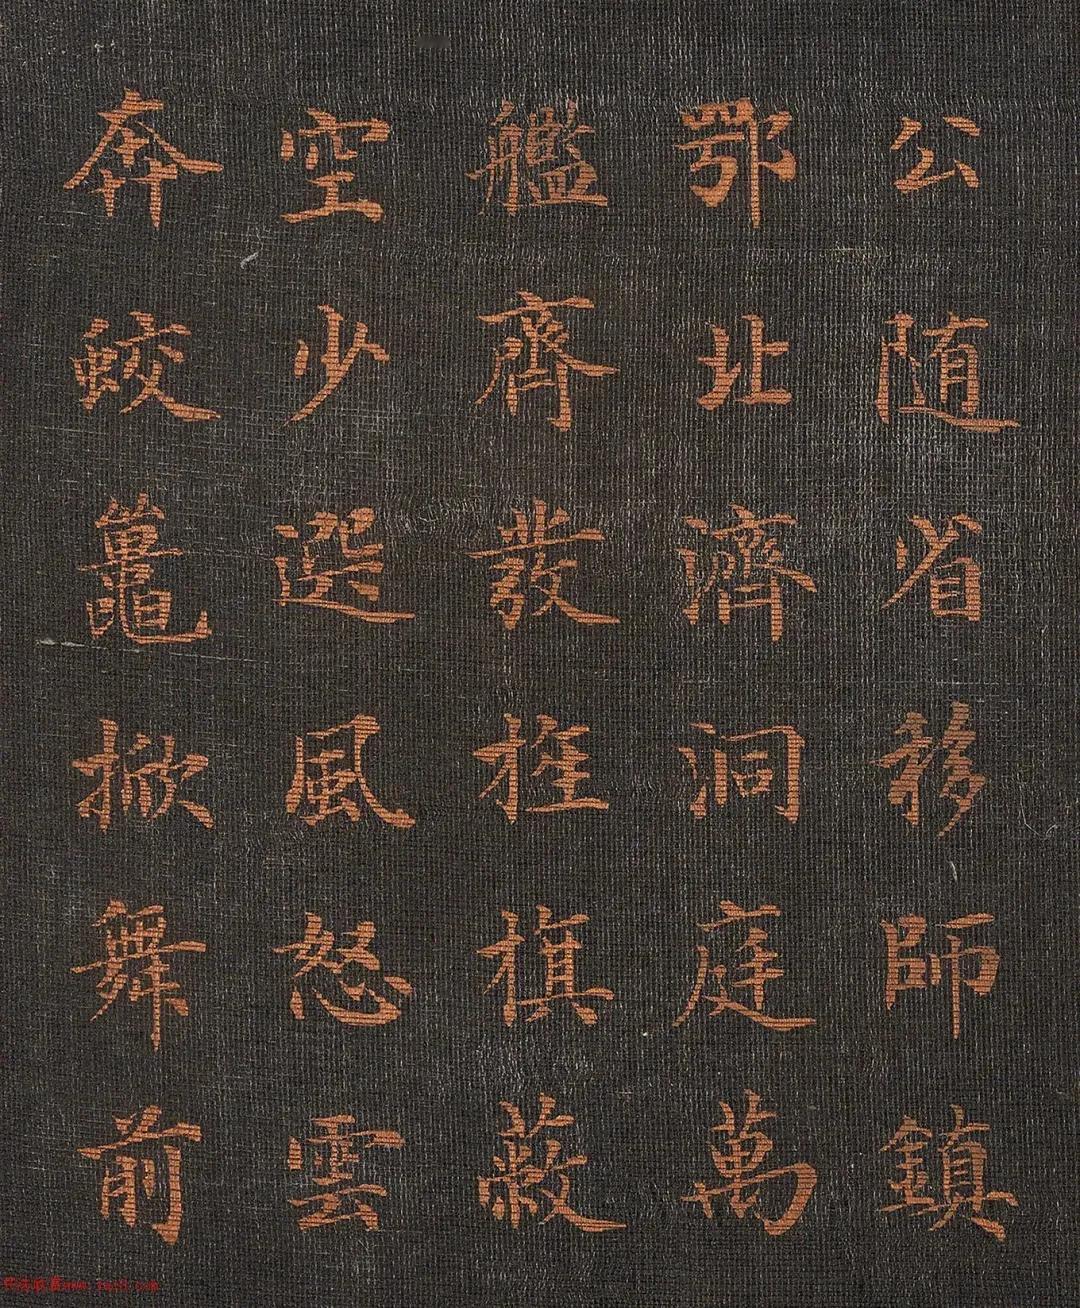 公随省移師鎮
鄂北濟洞庭萬
艦齊發旌旗蔽
空少選風怒雲
奔蛟鼉掀舞前